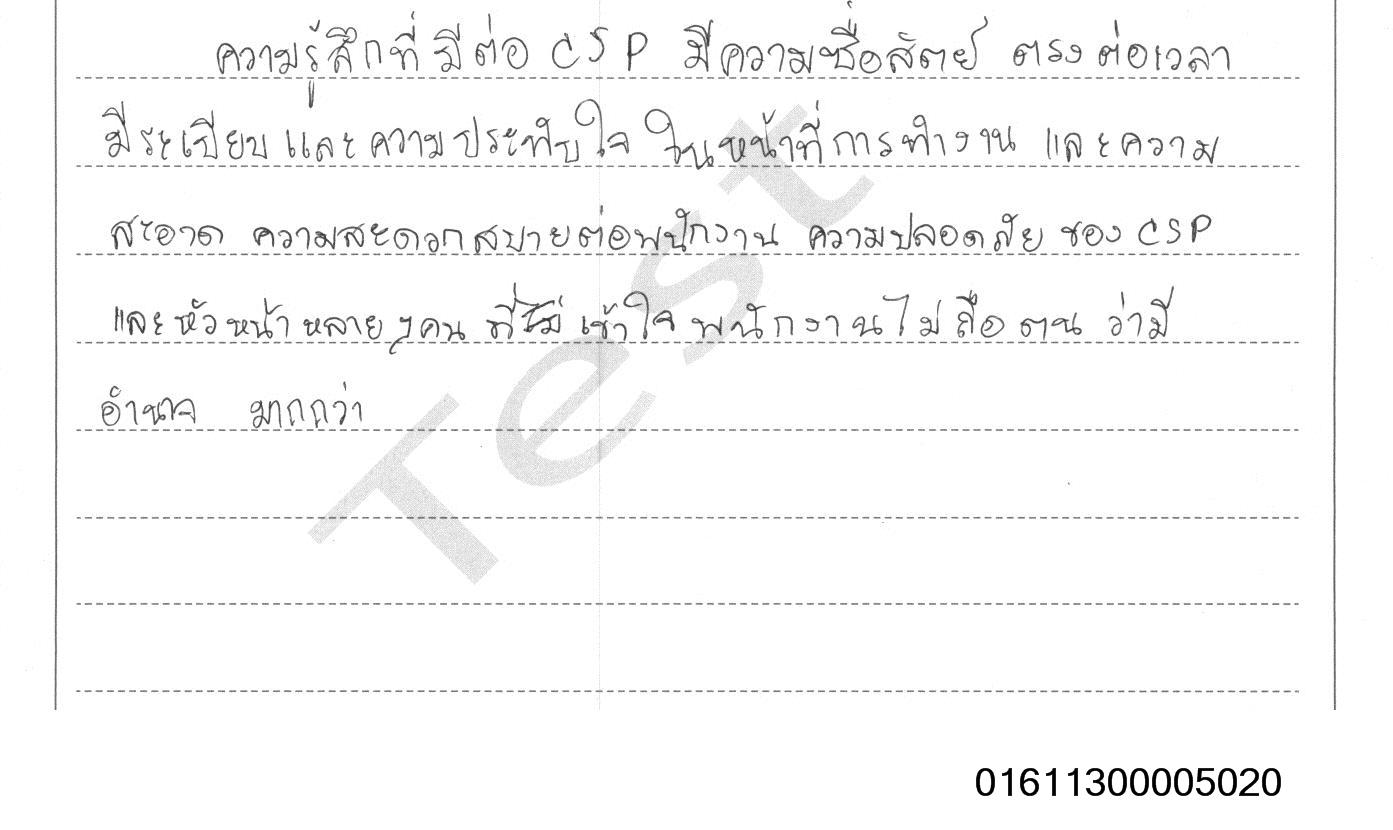 ความรู้สึกที่มีต่อ CSP มีความซื่อสัตย์ ตรงต่อเวลา
มีระเบียบ และความประทับใจ ในหน้าที่การทำงาน และความ
สะอาด ความสะดวกสบายต่อพนักงาน ความปลอดภัย ของ CSP
และหัวหน้า หลายๆคน ที่ เข้าใจ พนักงานไม่ถือตน ว่ามี
อำนาจ มากกว่า
Test
01611300005020